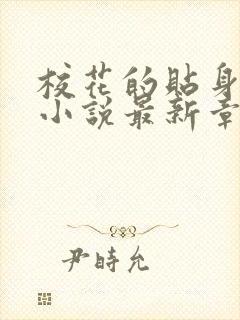 校花的貼身
小說最新章
尹時允